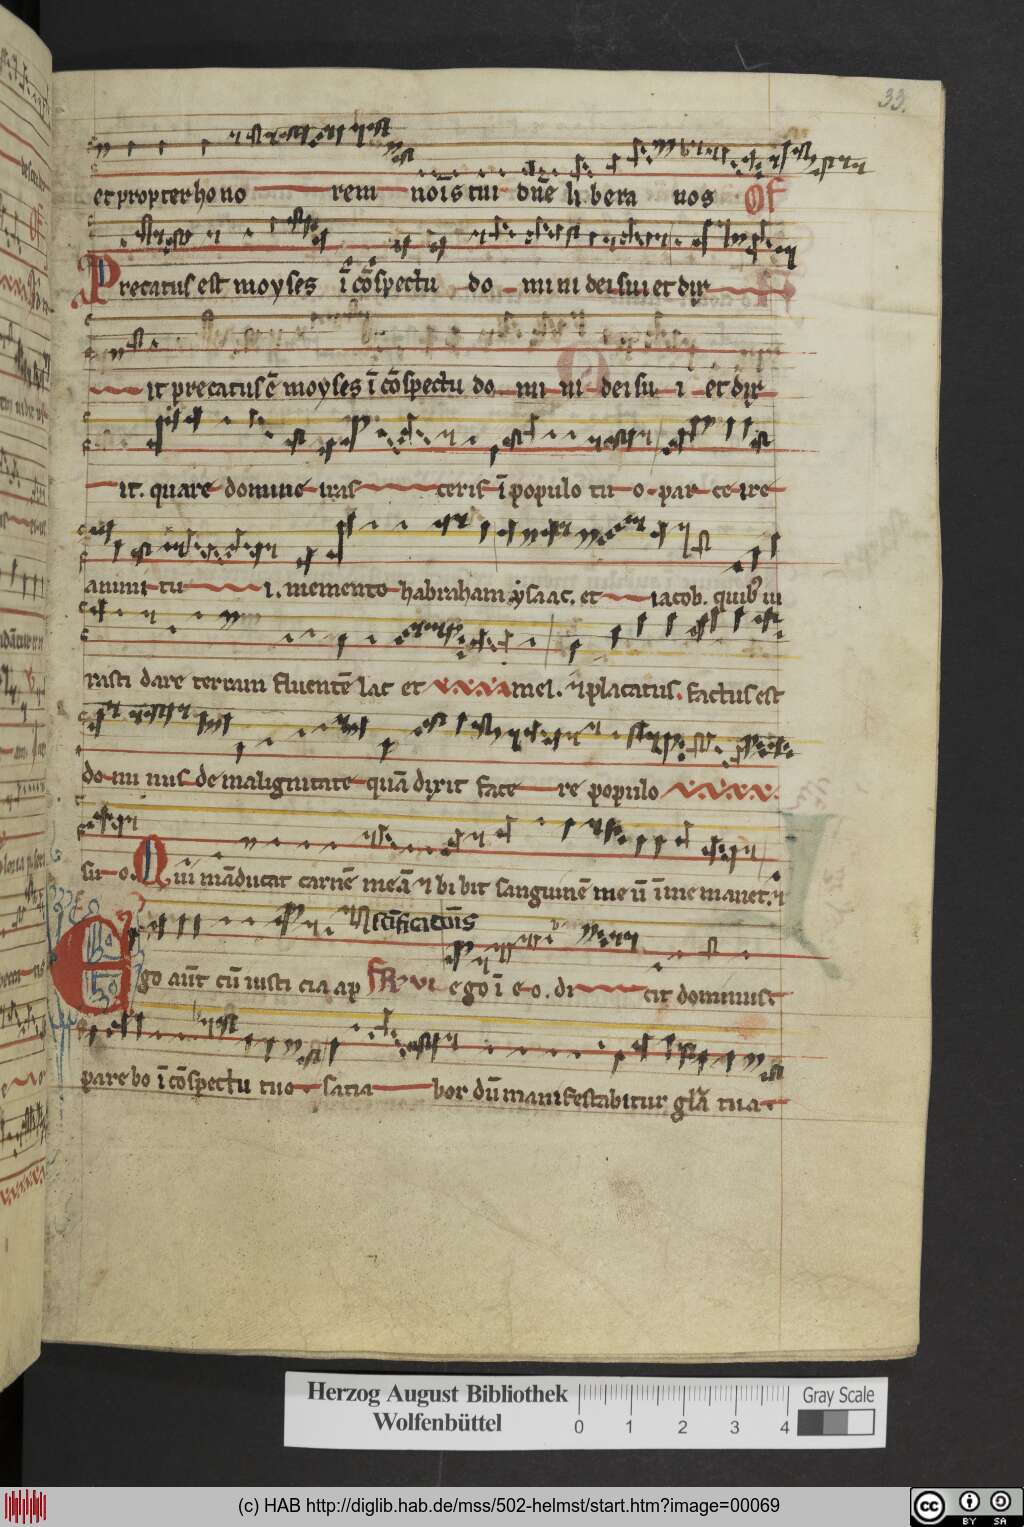 33.
et propter hono rem nōis tui dn̄e libera nos Of
Precatus est moyses ī cōspectu do mini dei sui et dix
it precatus ē moyses ī cōspectu do mi ni dei su i et dix
it. quare domine iras ceris ī populo tu o. par ce ire
animi tu i. memento habraham ysaac. et iacob. quib iu
rasti dare terram fluentē lac et mel. ⁊ placatus. factus est
do mi nus de malignitate quā dixit face re populo
su o. Qui māducat carnē meā ⁊ bibit sanguinē meū ī me manet. ⁊
Ego aut̄ cū iusti cia ap FR VI ego ī e o. di cit dominus
pare bo ī cōspectu tuo satia bor dū manifestabitur glā tua
Herzog August Bibliothek
Wolfenbüttel
0 1 2 3 4
Gray Scale
(c) HAB http://diglib.hab.de/mss/502-helmst/start.htm?image=00069
cc BY SA